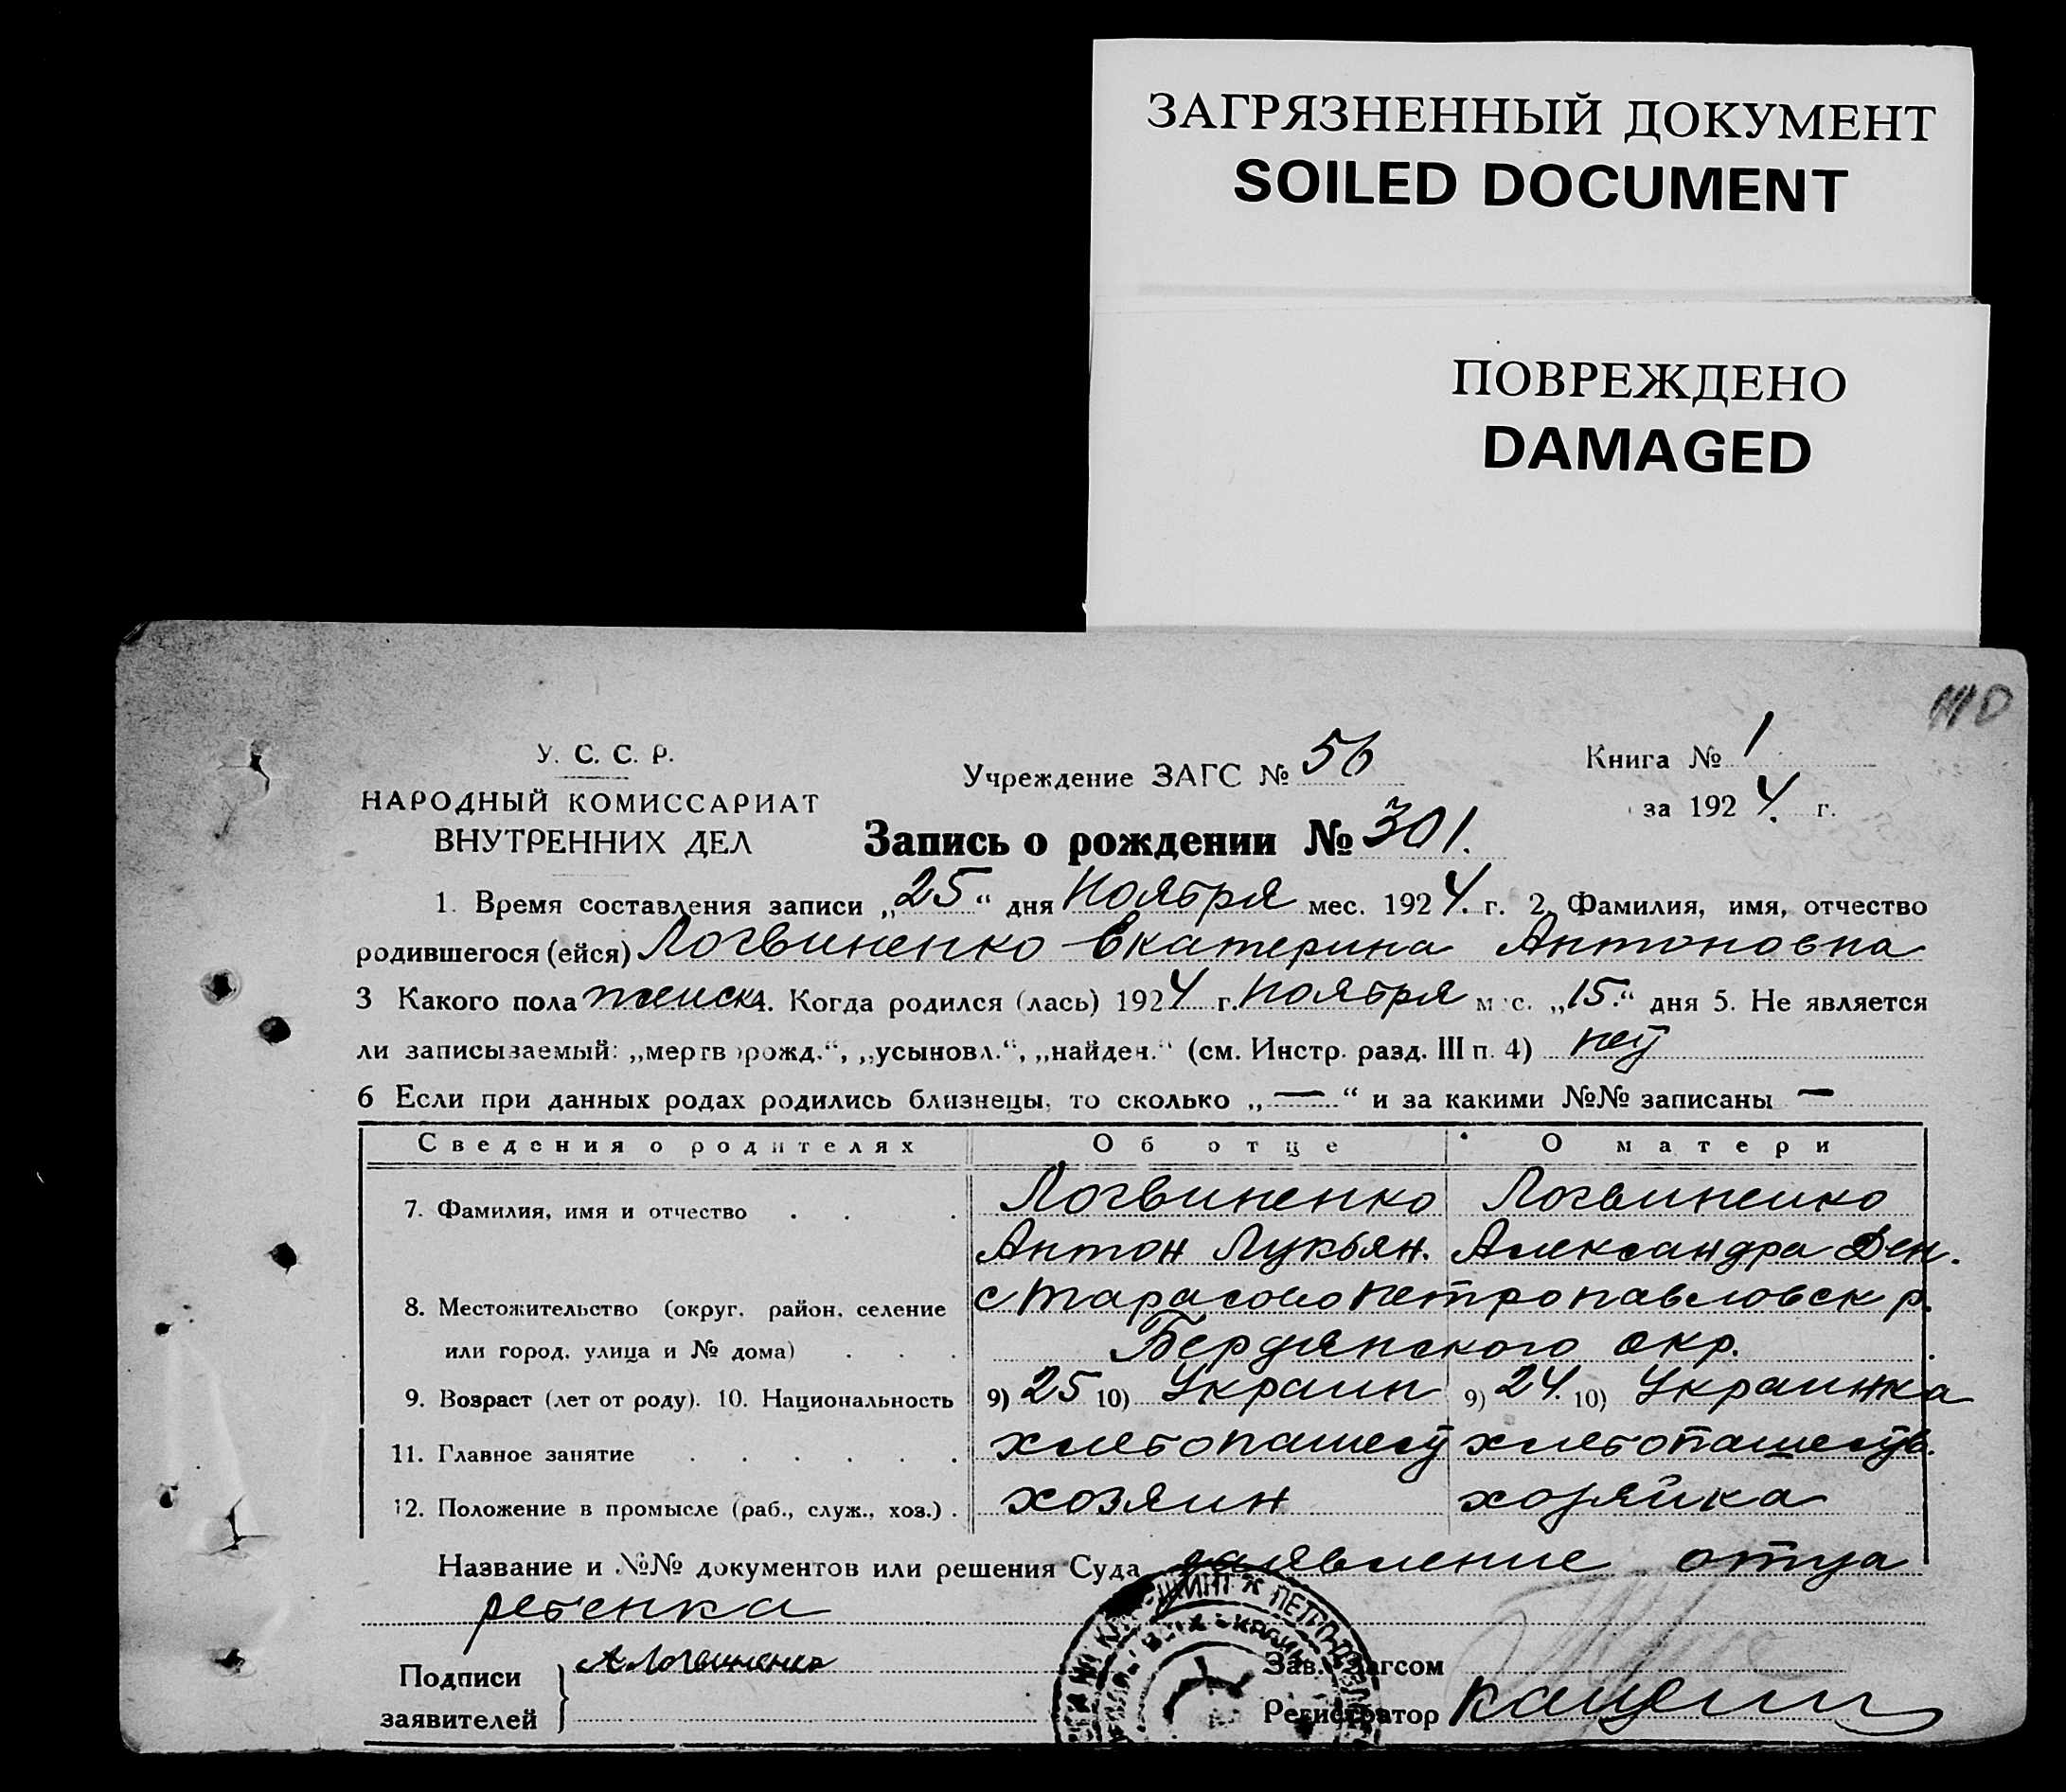 ЗАГРЯЗНЕННЫЙ ДОКУМЕНТ
SOILED DOCUMENT
ПОВРЕЖДЕНО
DAMAGED
У. С. С. Р.
НАРОДНЫЙ КОМИССАРИАТ
ВНУТРЕННИХ ДЕЛ
Учреждение ЗАГС № 56
Книга № 1
за 1924. г.
Запись о рождении № 301.
1. Время составления записи „25“ дня Ноября мес. 1924. г. 2. Фамилия, имя, отчество
родившегося (ейся) Логвиненко Екатерина Антоновна
3 Какого пола женск 4. Когда родился (лась) 1924 г. Ноября м с. „15.“ дня 5. Не является
ли записываемый: „мертв орожд.“, „усыновл.“, „найден.“ (см. Инстр. разд. III п. 4) нет
6 Если при данных родах родились близнецы, то сколько „—“ и за какими №№ записаны —
Сведения о родителях Об отце О матери
7. Фамилия, имя и отчество . . . Логвиненко Логвиненко
Антон Лукьян. Александра Ден.
8. Местожительство (округ, район, селение с Тарасово Петропавловск р.
или город, улица и № дома) . . . Бердянского окр.
9. Возраст (лет от роду). 10. Национальность 9) 25 10) Украин 9) 24. 10) Украинка
11. Главное занятие . . . . . . хлебопашест хлебопашеств.
12. Положение в промысле (раб., служ., хоз.) . хозяин хозяйка
Название и №№ документов или решения Суда заявление отца
ребенка
Подписи
заявителей
А Логвиненко
Зав. Загсом
Регистратор